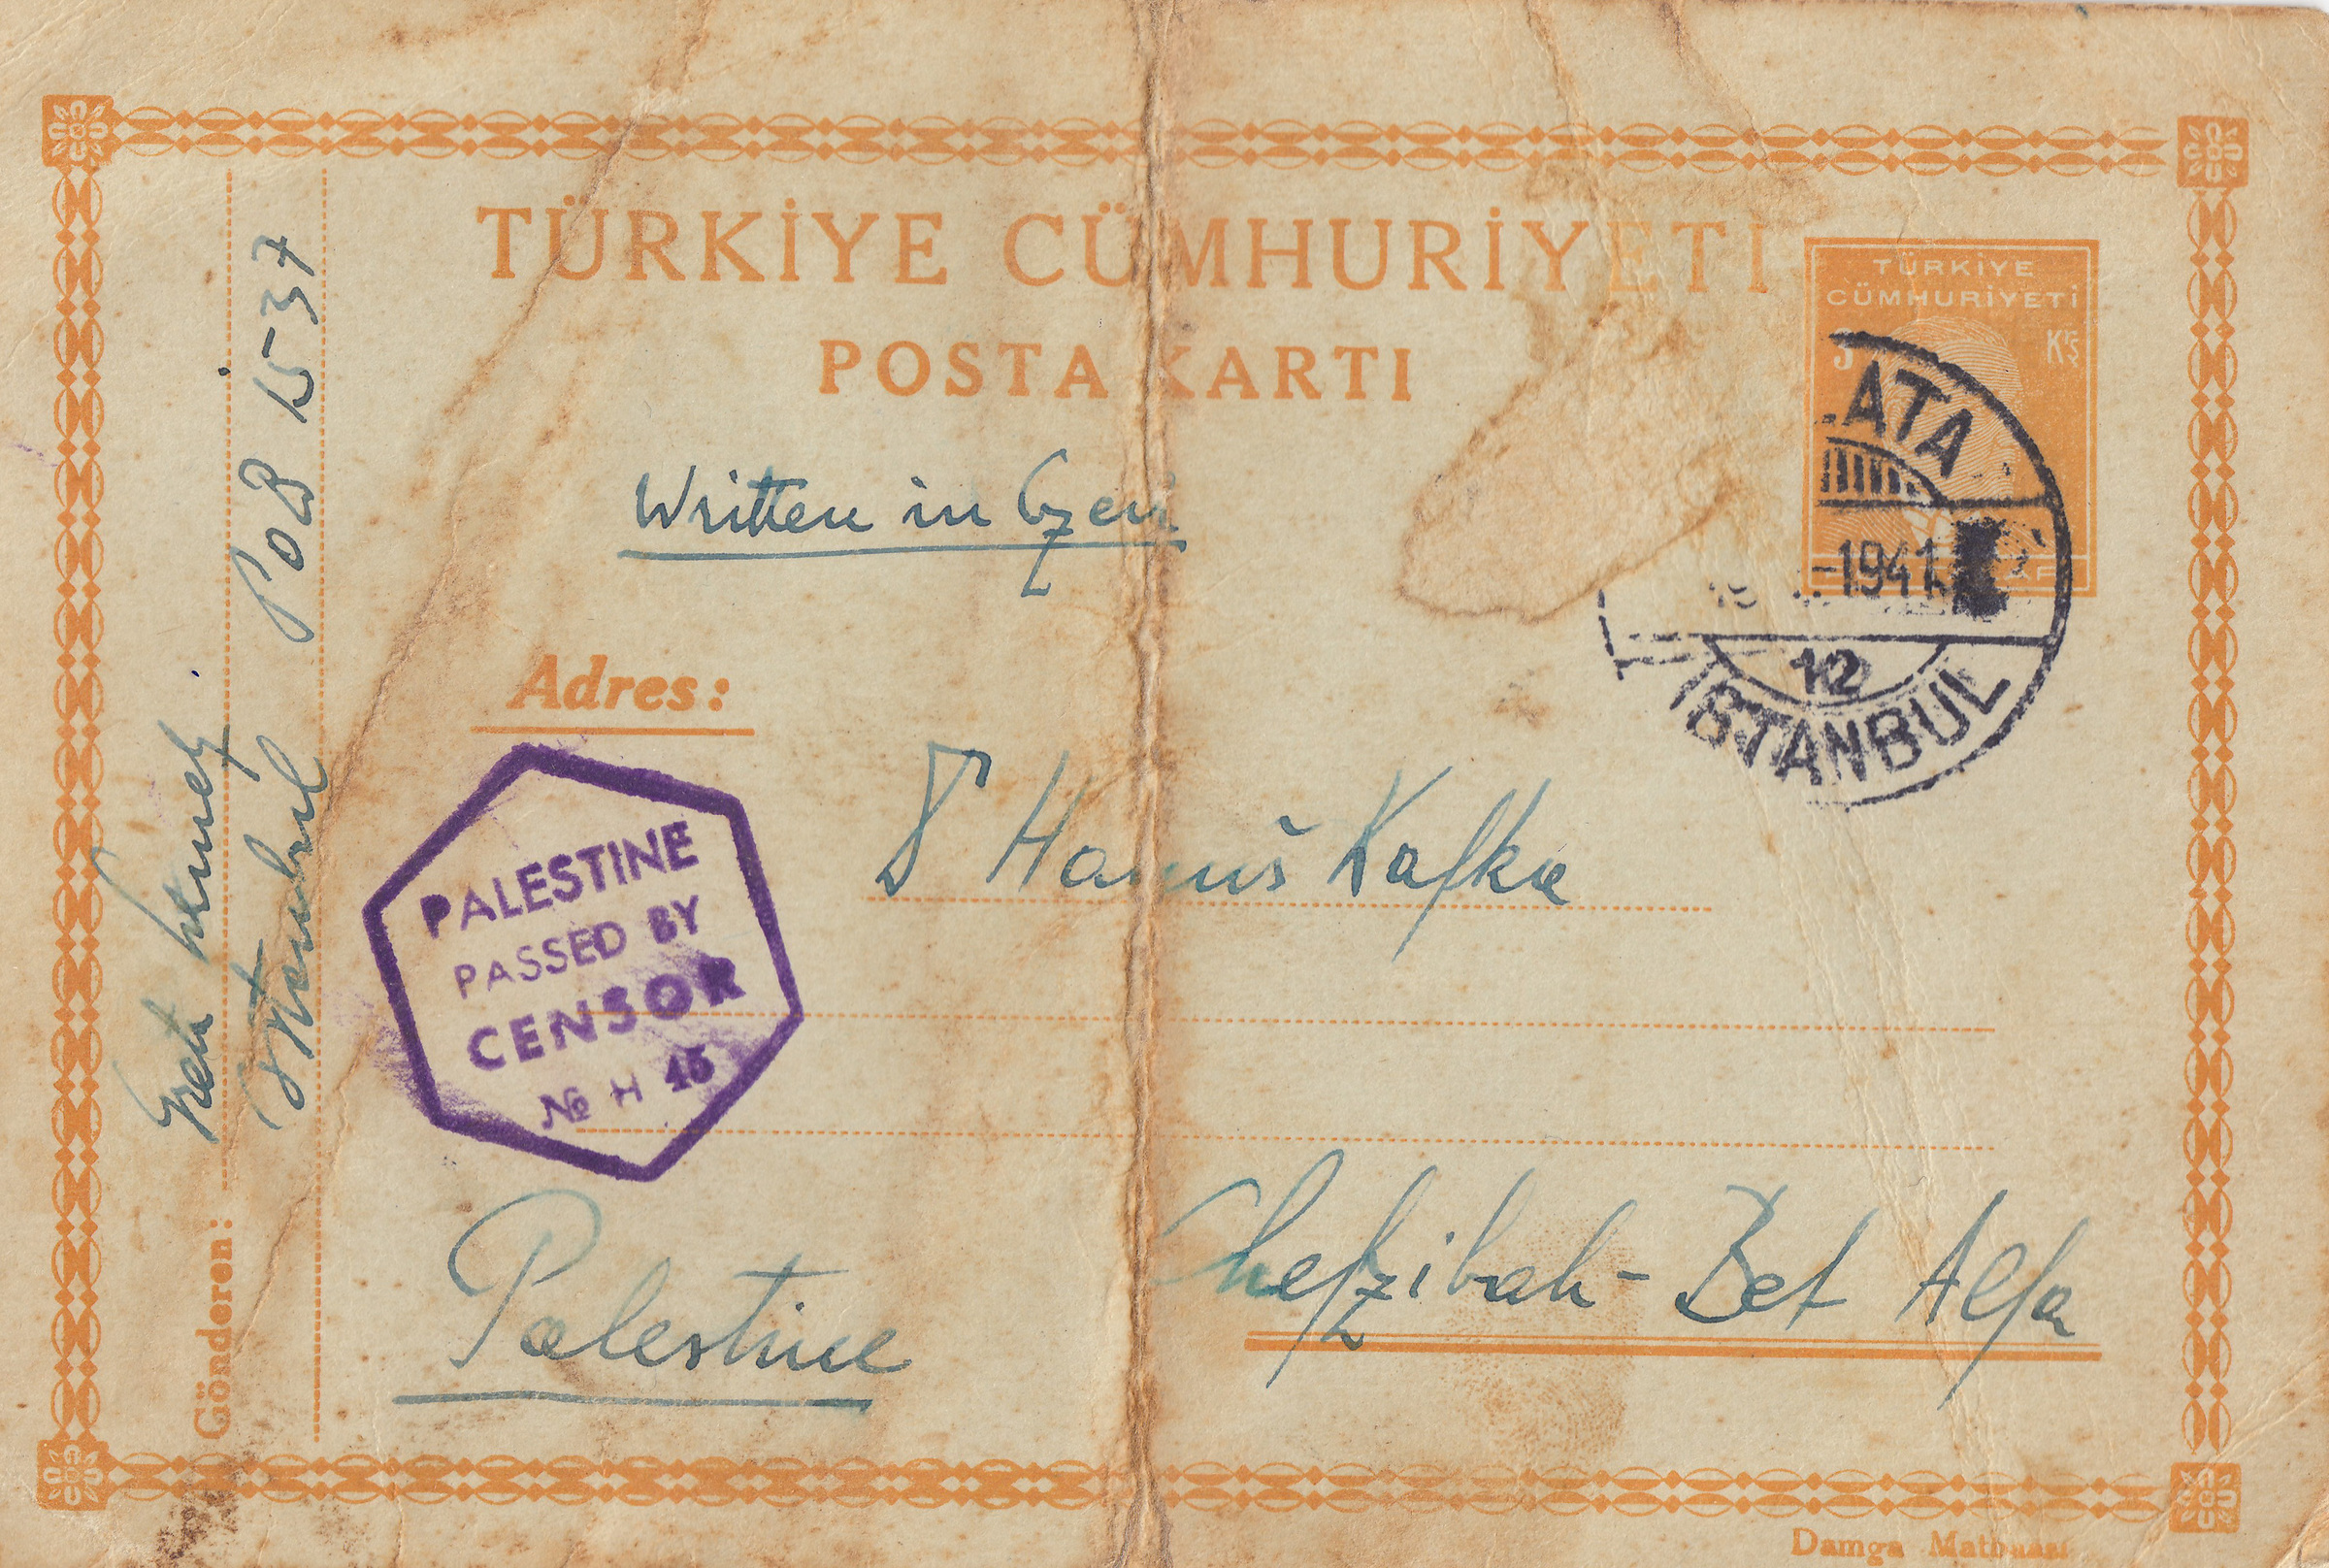 TÜRKİYE CÜMHURİYETİ
POSTA KARTI
TÜRKİYE
CÜMHURİYETİ
3 Krş
ATA
-1941
12
İSTANBUL
Written in Czech
Adres:
Dr Hanuš Kafka
PALESTINE
PASSED BY
CENSOR
№ H 15
Chefzibah - Bet Alfa
Palestine
Gönderen:
Istanbul POB 1537
Damga Matbaası